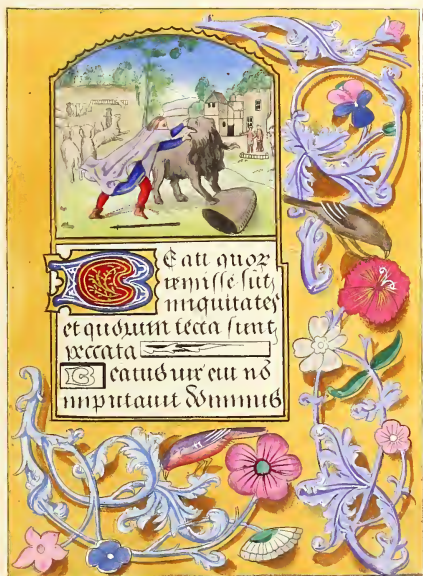 Beati quoꝝ
remisse sūt
iniquitates
et quorum tecta sunt
peccata
Beatus uir cui nō
imputauit Dominus